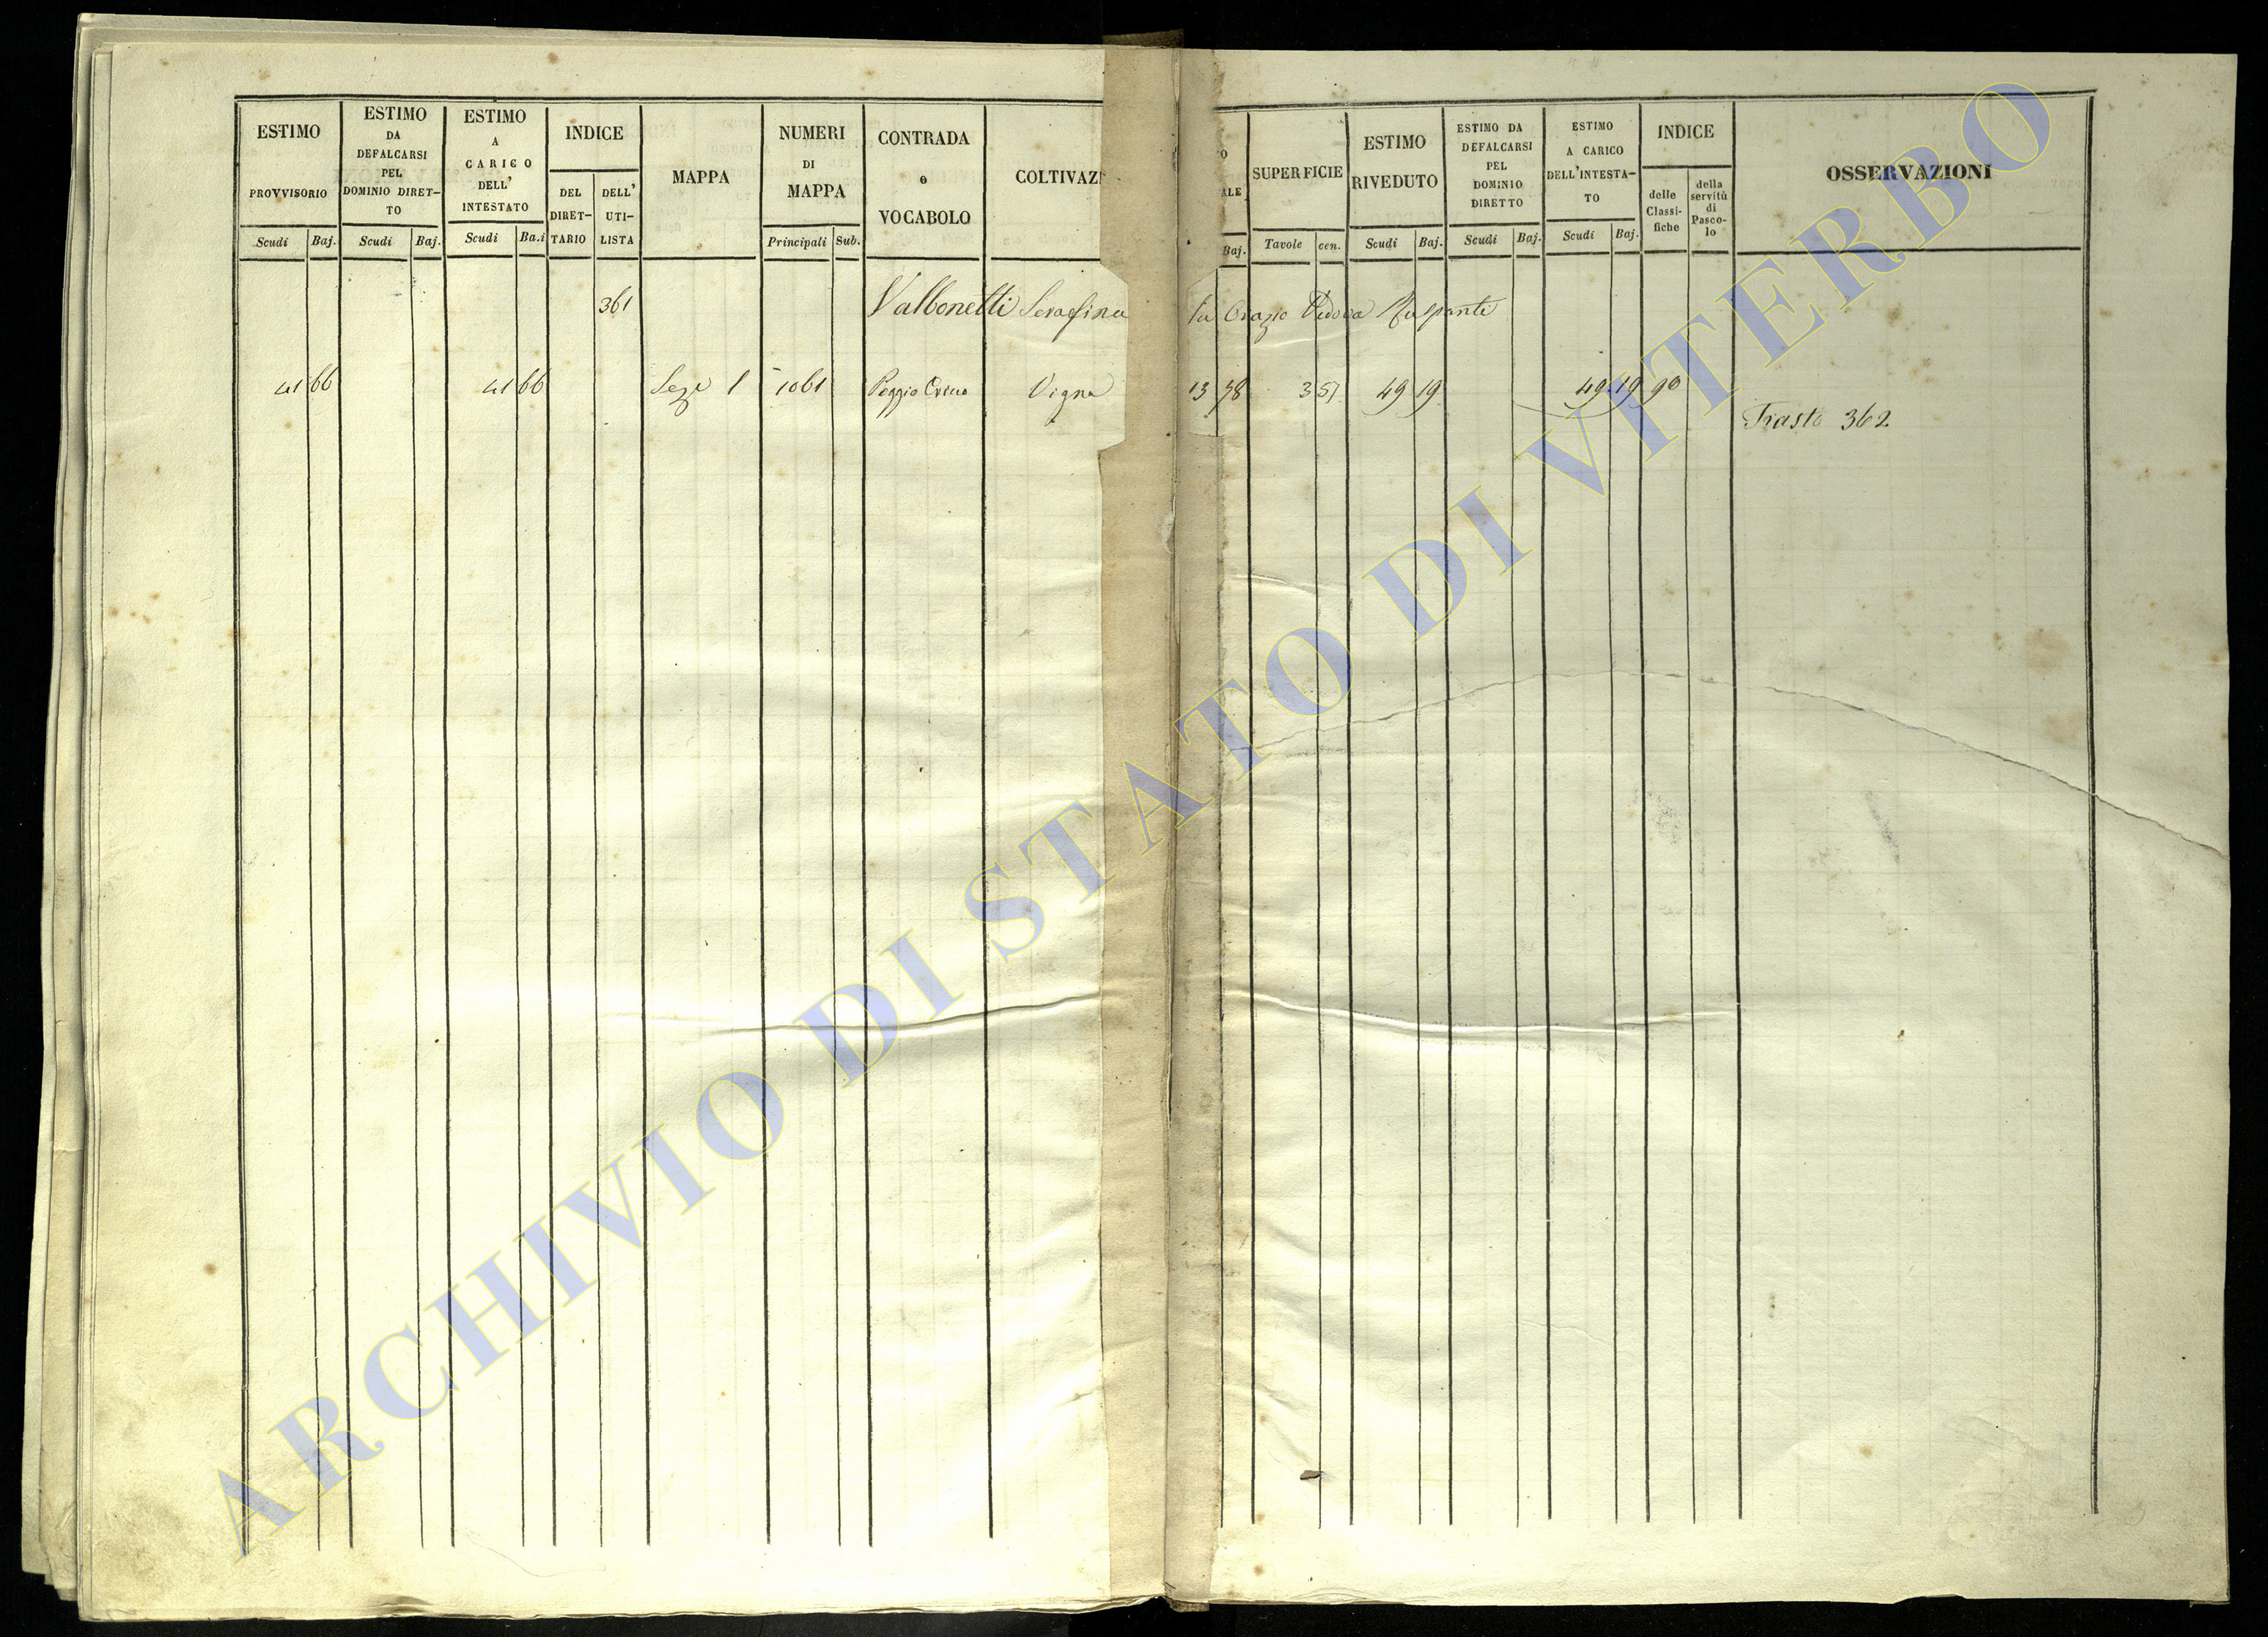 ESTIMO PROVVISORIO
Scudi Baj.
ESTIMO DA DEFALCARSI PEL DOMINIO DIRET-TO
Scudi Baj.
ESTIMO A CARICO DELL' INTESTATO
Scudi Ba.i
INDICE
DEL DIRET-TARIO
DELL' UTI-LISTA
MAPPA
NUMERI DI MAPPA
Principali Sub.
CONTRADA o VOCABOLO
COLTIVAZI
O
ALE
Baj.
SUPERFICIE
Tavole cen.
ESTIMO RIVEDUTO
Scudi Baj.
ESTIMO DA DEFALCARSI PEL DOMINIO DIRETTO
Scudi Baj.
ESTIMO A CARICO DELL'INTESTA-TO
Scudi Baj.
INDICE
delle Classi-fiche
della servitù di Pasco-lo
OSSERVAZIONI
361 Valbonetti Serafina fu Orazio Vedova Ruspanti
41 66 41 66 Sezе 1 1061 Poggio Vigna 13 78 3 57 49 19 49 19 90
Trasto 362
ARCHIVIO DI STATO DI VITERBO